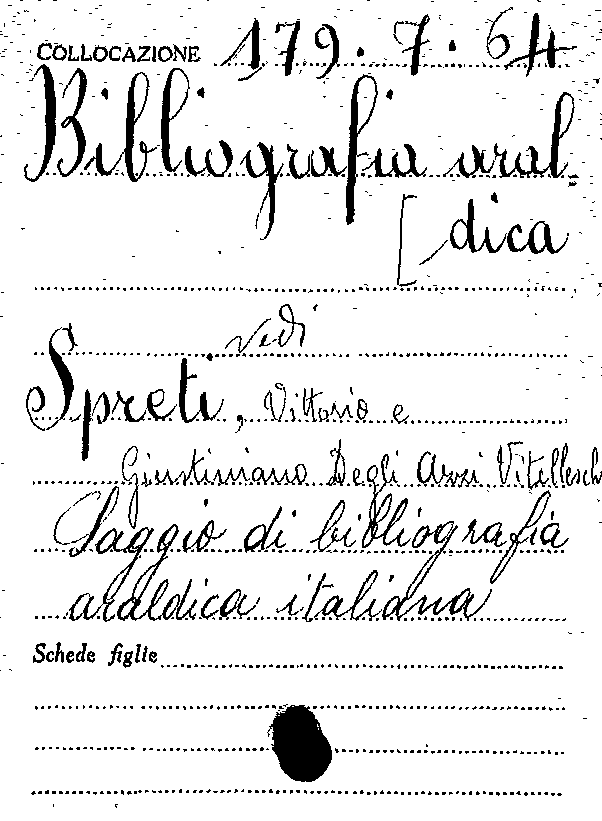 COLLOCAZIONE 179.7.64
Bibliografia aral-
[dica
vedi
Spreti, Vittorio e
Giustiniano Degli Azzi Vitellesch
Saggio di bibliografia
araldica italiana
Schede figlie